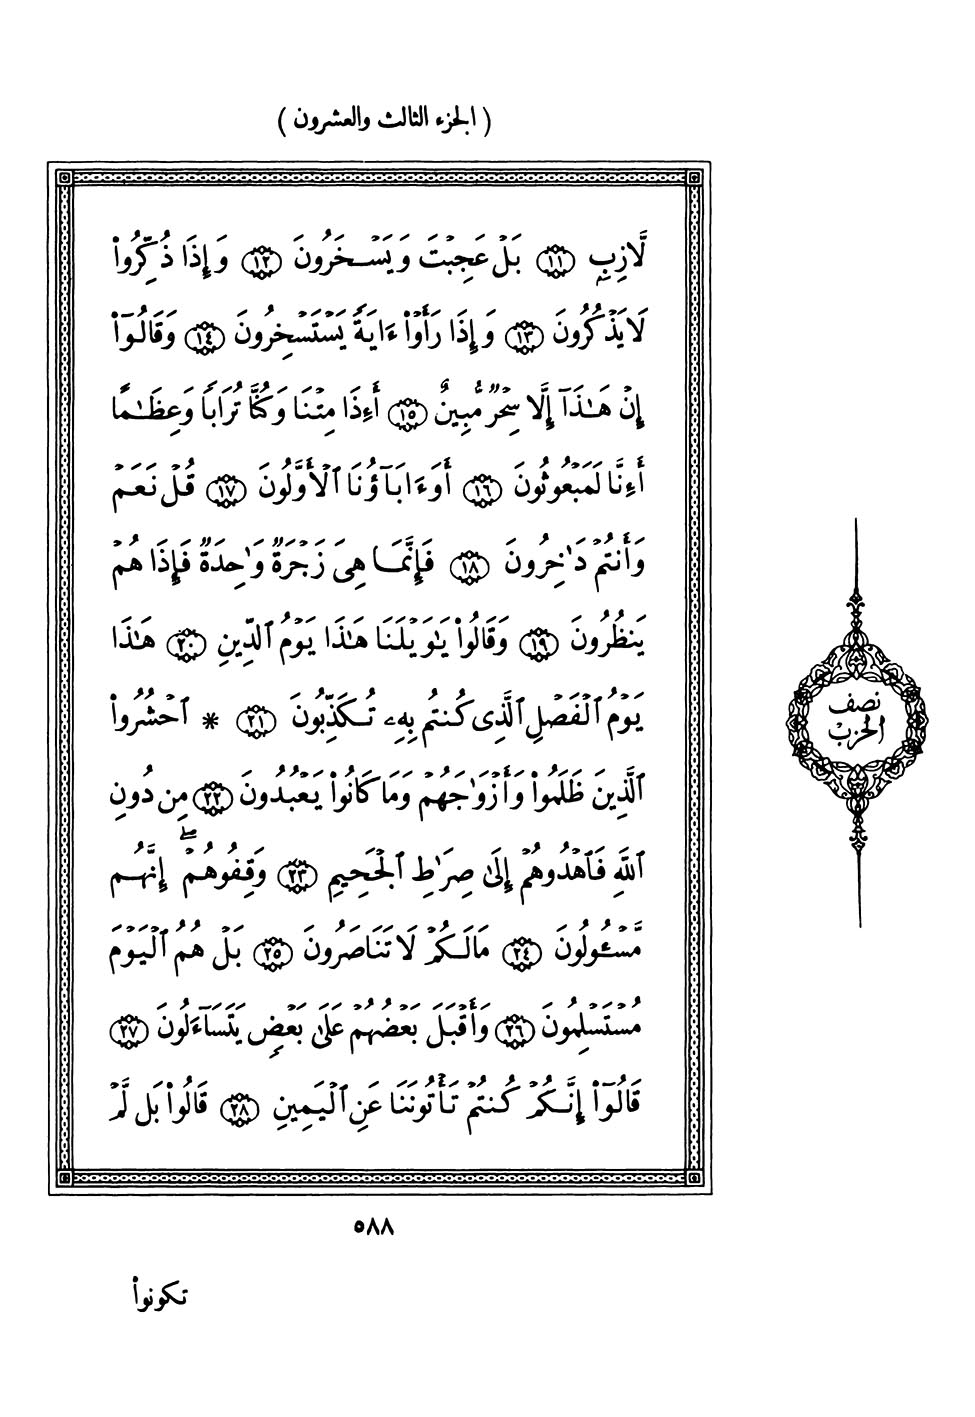 ( الجزء الثالث والعشرون )
لَّازِبٍ ١١ بَلْ عَجِبْتَ وَيَسْخَرُونَ ١٢ وَإِذَا ذُكِّرُواْ
لَا يَذْكُرُونَ ١٣ وَإِذَا رَأَوْاْ ءَايَةً يَسْتَسْخِرُونَ ١٤ وَقَالُوٓاْ
إِنْ هَٰذَآ إِلَّا سِحْرٌ مُّبِينٌ ١٥ أَءِذَا مِتْنَا وَكُنَّا تُرَابًا وَعِظَٰمًا
أَءِنَّا لَمَبْعُوثُونَ ١٦ أَوَءَابَآؤُنَا ٱلْأَوَّلُونَ ١٧ قُلْ نَعَمْ
وَأَنتُمْ دَٰخِرُونَ ١٨ فَإِنَّمَا هِىَ زَجْرَةٌ وَٰحِدَةٌ فَإِذَا هُمْ
يَنظُرُونَ ١٩ وَقَالُواْ يَٰوَيْلَنَا هَٰذَا يَوْمُ ٱلدِّينِ ٢٠ هَٰذَا
يَوْمُ ٱلْفَصْلِ ٱلَّذِى كُنتُم بِهِۦ تُكَذِّبُونَ ٢١ * ٱحْشُرُواْ
نصف
الحزب
ٱلَّذِينَ ظَلَمُواْ وَأَزْوَٰجَهُمْ وَمَا كَانُواْ يَعْبُدُونَ ٢٢ مِن دُونِ
ٱللَّهِ فَٱهْدُوهُمْ إِلَىٰ صِرَٰطِ ٱلْجَحِيمِ ٢٣ وَقِفُوهُمْۖ إِنَّهُم
مَّسْـُٔولُونَ ٢٤ مَا لَكُمْ لَا تَنَاصَرُونَ ٢٥ بَلْ هُمُ ٱلْيَوْمَ
مُسْتَسْلِمُونَ ٢٦ وَأَقْبَلَ بَعْضُهُمْ عَلَىٰ بَعْضٍ يَتَسَآءَلُونَ ٢٧
قَالُوٓاْ إِنَّكُمْ كُنتُمْ تَأْتُونَنَا عَنِ ٱلْيَمِينِ ٢٨ قَالُواْ بَل لَّمْ
٥٨٨
تكونواْ